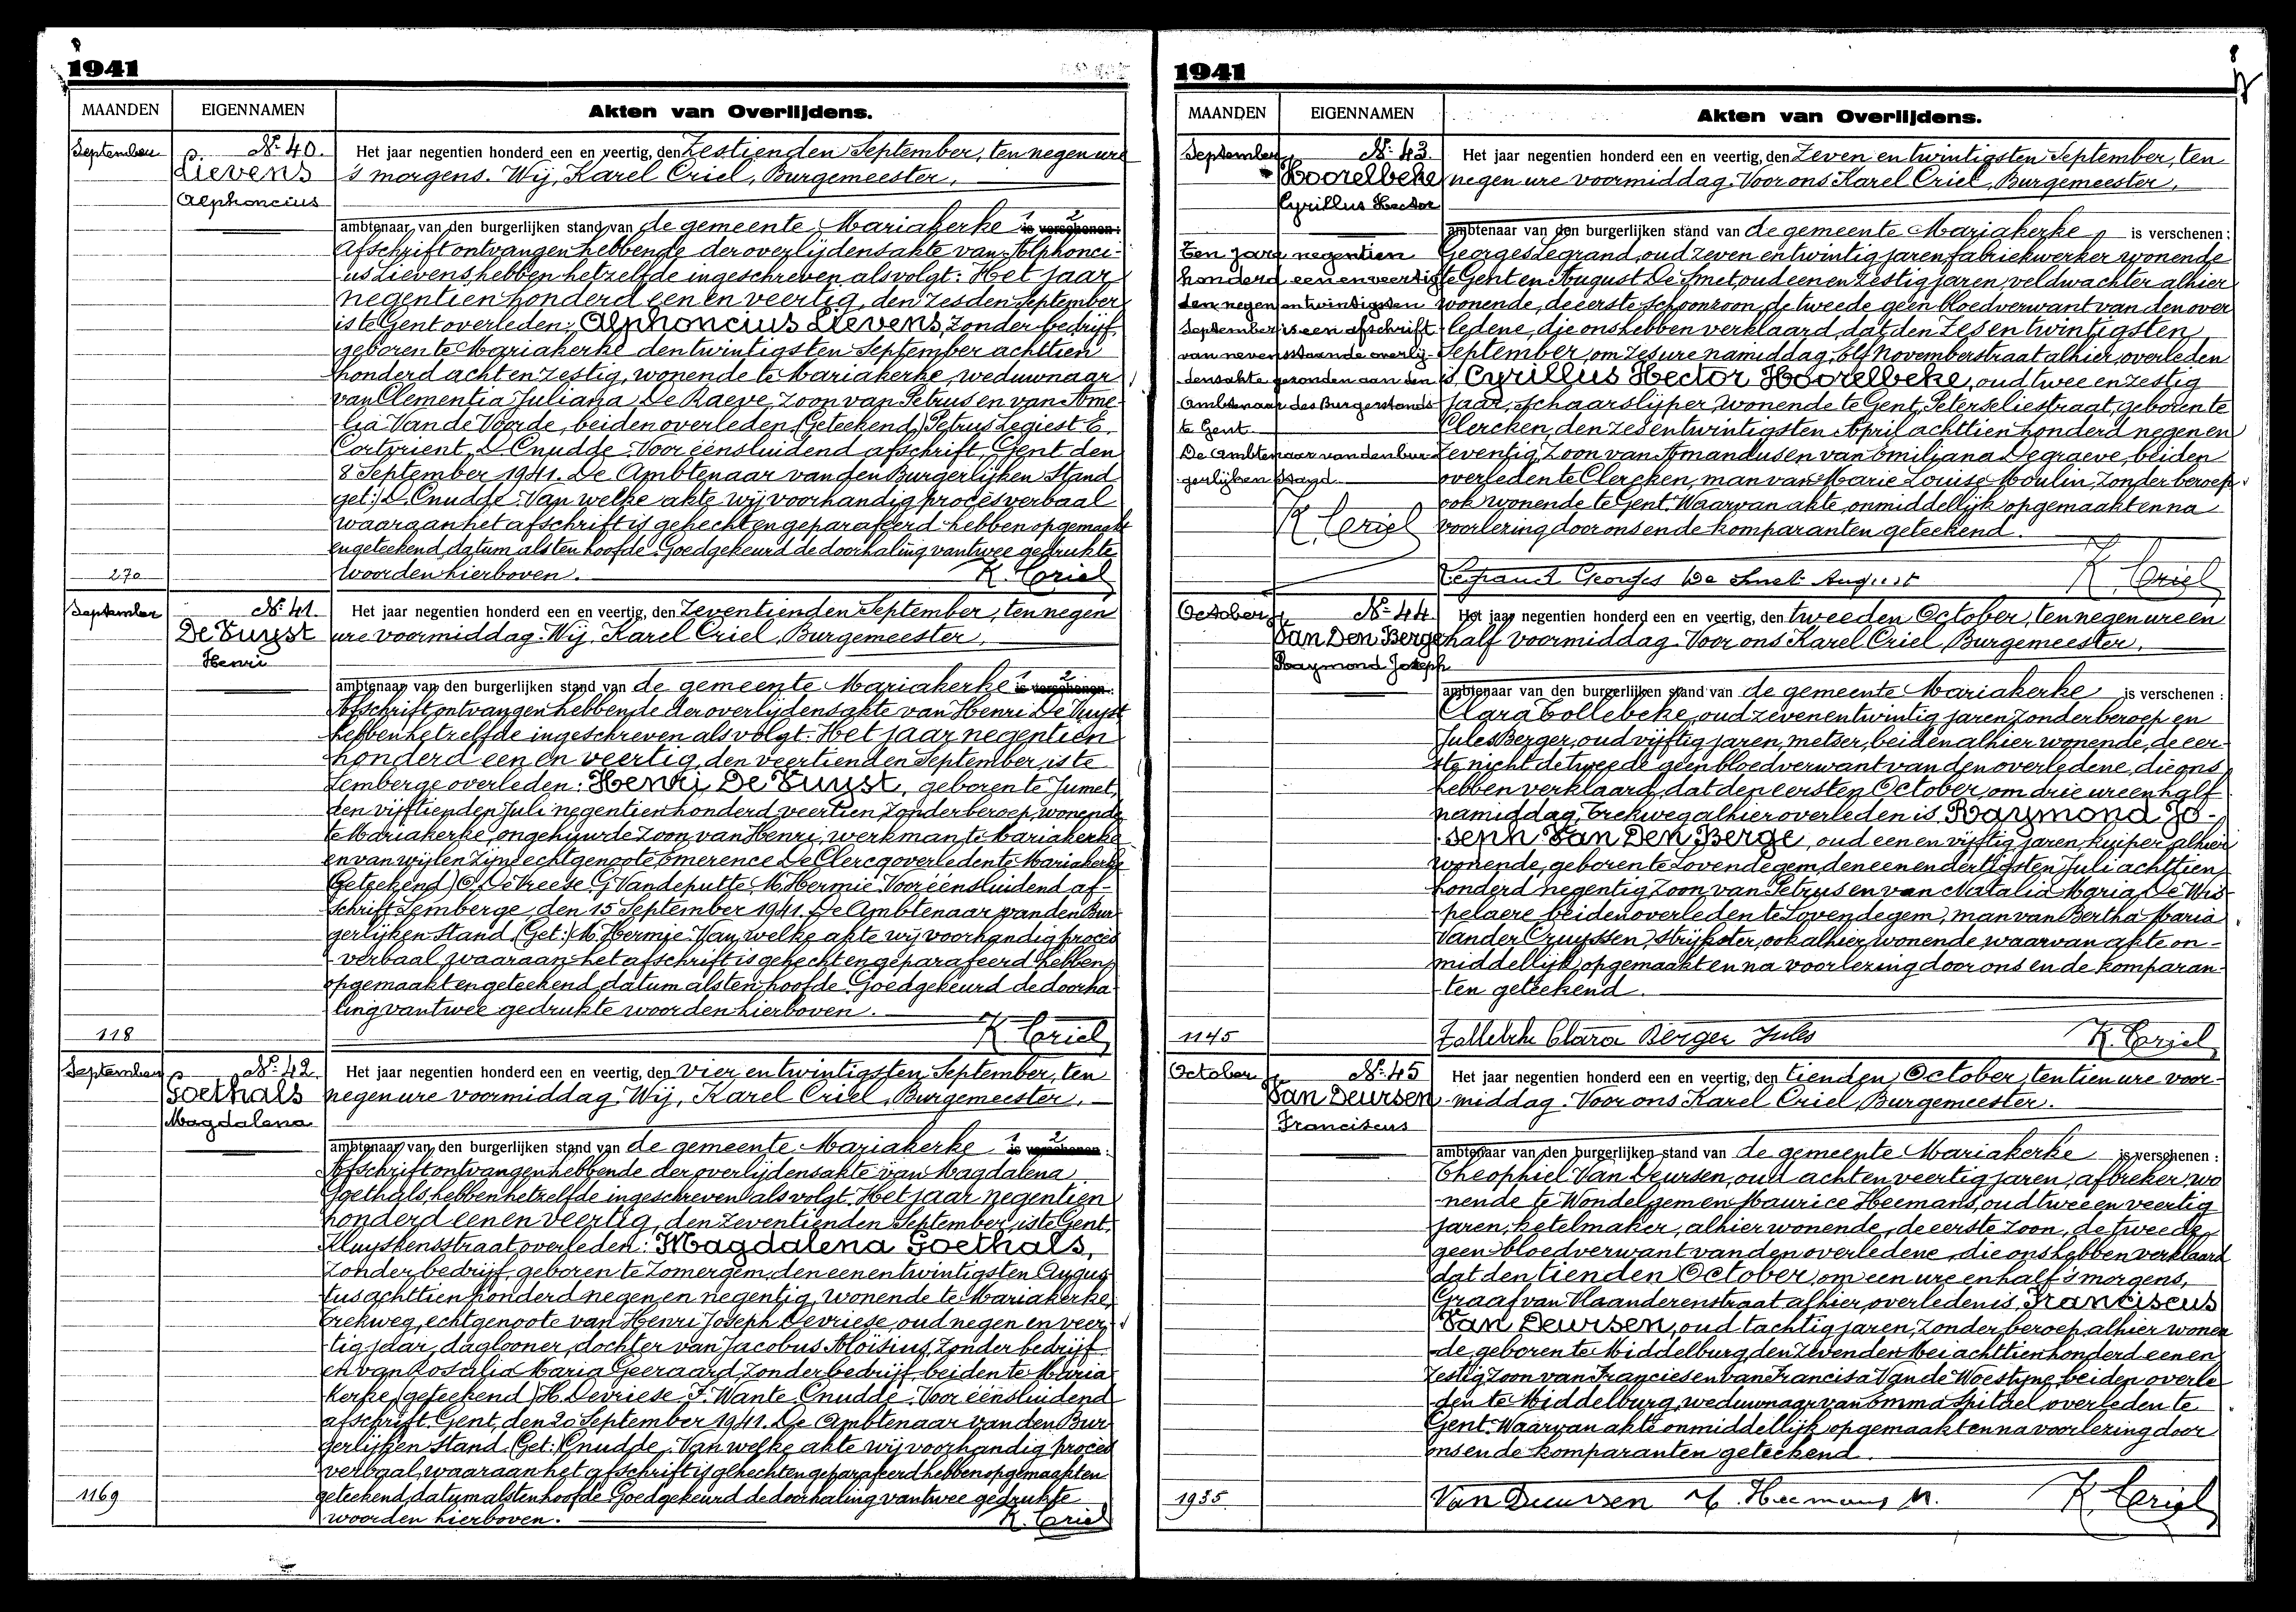 8
1941
MAANDEN
EIGENNAMEN
Akten van Overlijdens.
September
Nr 40.
Lievens
Alphoncius
Het jaar negentien honderd een en veertig, den Zestienden September, ten negen ure
's morgens. Wij, Karel Criel, Burgemeester,
ambtenaar van den burgerlijken stand van de gemeente Mariakerke 1 is 2 verschenen:
Afschrift ontvangen hebbende der overlijdensakte van Alphonci-
us Lievens, hebben hetzelfde ingeschreven als volgt: Het jaar
negentien honderd een en veertig, den zesden September
is te Gent overleden: Alphoncius Lievens, zonder bedrijf,
geboren te Mariakerke den twintigsten September achttien
honderd acht en zestig, wonende te Mariakerke, weduwnaar
van Clementia Juliana De Raeve, zoon van Petrus en van Ame-
lia Van de Voorde, beiden overleden (Geteekend) Petrus Legiest E.
Cortvrient, D. Cnudde. Voor éénsluidend afschrift, Gent den
8 September 1941. De Ambtenaar van den Burgerlijken Stand
get:) D. Cnudde. Van welke akte wij voorhandig procesverbaal
waaraan het afschrift is gehecht en geparafeerd hebben opgemaakt
en geteekend, datum als ten hoofde. Goedgekeurd de doorhaling van twee gedrukte
woorden hierboven.
K. Criel
270
September
Nr 41.
De Vuyst
Henri
Het jaar negentien honderd een en veertig, den Zeventienden September, ten negen
ure voormiddag. Wij, Karel Criel, Burgemeester,
ambtenaar van den burgerlijken stand van de gemeente Mariakerke 1 is 2 verschenen:
Afschrift ontvangen hebbende der overlijdensakte van Henri De Vuyst
hebben hetzelfde ingeschreven als volgt: Het jaar negentien
honderd een en veertig, den veertienden September, is te
Lemberge overleden: Henri De Vuyst, geboren te Jumet,
den vijftienden Juli negentien honderd veertien, zonder beroep, wonende
te Mariakerke, ongehuwde zoon van Henri, werkman te Mariakerke
en van wijlen zijne echtgenoote Emerence De Clercq overleden te Mariakerke
(Geteekend) O. De Vreese G. Vandeputte M. Hermie. Voor éénsluidend af-
schrift Lemberge, den 15 September 1941. De Ambtenaar van den Bur-
gerlijken Stand. (Get:) M. Hermie. Van welke akte wij voorhandig proces
verbaal, waaraan het afschrift is gehecht en geparafeerd hebben
opgemaakt en geteekend, datum als ten hoofde. Goedgekeurd de doorha-
ling van twee gedrukte woorden hierboven.
K. Criel
118
September
Nr 42.
Goethals
Magdalena
Het jaar negentien honderd een en veertig, den vier en twintigsten September, ten
negen ure voormiddag. Wij, Karel Criel, Burgemeester,
ambtenaar van den burgerlijken stand van de gemeente Mariakerke 1 is 2 verschenen:
Afschrift ontvangen hebbende der overlijdensakte van Magdalena
Goethals, hebben hetzelfde ingeschreven als volgt. Het jaar negentien
honderd een en veertig, den zeventienden September, is te Gent,
Kluyskensstraat overleden: Magdalena Goethals,
zonder bedrijf, geboren te Zomergem, den een en twintigsten Augus-
tus achttien honderd negen en negentig, wonende te Mariakerke,
Trekweg, echtgenoote van Henri Joseph Devriese, oud negen en veer-
tig jaar, daglooner, dochter van Jacobus Aloïsius, zonder bedrijf
en van Rosalia Maria Geeraard, zonder bedrijf, beiden te Maria-
kerke, (geteekend) H. Devriese F. Wante Cnudde. Voor éénsluidend
afschrift. Gent, den 20 September 1941. De Ambtenaar van den Bur-
gerlijken Stand. (Get:) Cnudde. Van welke akte wij voorhandig proces
verbaal, waaraan het afschrift is gehecht en geparafeerd hebben opgemaakt en
geteekend, datum als ten hoofde. Goedgekeurd de doorhaling van twee gedrukte
woorden hierboven.
K. Criel
1169
8
1941
MAANDEN
EIGENNAMEN
Akten van Overlijdens.
September
Nr 43.
Hoorelbeke
Cyrillus Hector
Ten jare negentien
honderd een en veertig
den negen en twintigsten
September is een afschrift
van nevenstaande overlij-
densakte gezonden aan den
Ambtenaar des Burgerstands
te Gent.
De Ambtenaar van den bur-
gerlijken Stand.
K. Criel
Het jaar negentien honderd een en veertig, den Zeven en twintigsten September, ten
negen ure voormiddag. Voor ons Karel Criel, Burgemeester,
ambtenaar van den burgerlijken stand van de gemeente Mariakerke, is verschenen:
Georges Legrand, oud zeven en twintig jaren, fabriekwerker wonende
te Gent en August De Smet, oud een en zestig jaren, veldwachter alhier
wonende, de eerste schoonzoon, de tweede geen bloedverwant van den over-
ledene, die ons hebben verklaard, dat den zes en twintigsten
September, om zes ure namiddag, Elf novemberstraat alhier, overleden
is, Cyrillus Hector Hoorelbeke, oud twee en zestig
jaar, schaarslijper, wonende te Gent, Peterseliestraat, geboren te
Clercken, den zes en twintigsten April achttien honderd negen en
zeventig, zoon van Amandus en van Emiliana Degraeve, beiden
overleden te Clercken, man van Marie Louise Moulin, zonder beroep
ook wonende te Gent. Waarvan akte, onmiddellijk opgemaakt en na
voorlezing door ons en de komparanten geteekend.
Legrand Georges De Smet August
K. Criel
October
Nr 44.
Van Den Berge
Raymond Joseph
Het jaar negentien honderd een en veertig, den tweeden October, ten negen ure en
half voormiddag. Voor ons Karel Criel, Burgemeester,
ambtenaar van den burgerlijken stand van de gemeente Mariakerke is verschenen:
Clara Tollebeke, oud zeven en twintig jaren, zonder beroep en
Jules Berger, oud vijftig jaren, metser, beiden alhier wonende, de eer-
ste nicht de tweede geen bloedverwant van den overledene, die ons
hebben verklaard, dat den eersten October, om drie ure en half
namiddag, Trekweg alhier overleden is, Raymond Jo-
seph Van Den Berge, oud een en vijftig jaren, kuiper alhier
wonende, geboren te Lovendegem, den een en dertigsten Juli achttien
honderd negentig, zoon van Petrus en van Natalia Maria De Wis-
pelaere beiden overleden te Lovendegem, man van Bertha Maria
Vander Cruyssen, strijkster, ook alhier wonende waarvan akte on-
middellijk opgemaakt en na voorlezing door ons en de komparan-
ten geteekend.
Tollebeke Clara Berger Jules
K. Criel
1145
October
Nr 45
Van Deursen
Franciscus
Het jaar negentien honderd een en veertig, den tienden October, ten tien ure voor-
middag. Voor ons Karel Criel Burgemeester.
ambtenaar van den burgerlijken stand van de gemeente Mariakerke is verschenen:
Theophiel Van Deursen, oud acht en veertig jaren, afbreker, wo-
nende te Wondelgem en Maurice Heemans, oud twee en veertig
jaren, ketelmaker, alhier wonende, de eerste zoon, de tweede
geen bloedverwant van den overledene, die ons hebben verklaard
dat den tienden October, om een ure en half 's morgens,
Graaf van Vlaanderenstraat alhier, overleden is, Franciscus
Van Deursen, oud tachtig jaren, zonder beroep, alhier wonen-
de, geboren te Middelburg, den zevenden Mei achttien honderd een en
zestig, zoon van Francies en van Francisa Van de Woestijne, beiden overle-
den te Middelburg, weduwnaar van Emma Spitael, overleden te
Gent. Waarvan akte onmiddellijk opgemaakt en na voorlezing door
ons en de komparanten geteekend.
Van Deursen Heemans M.
K. Criel
1935